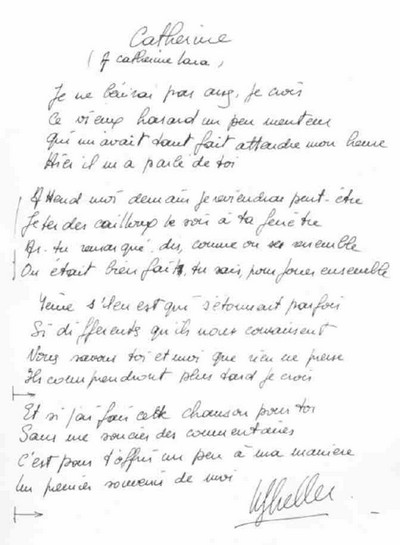 Catherine
(A catherine Lara)
Je ne bénirai pas assez, je crois
Ce vieux hasard un peu menteur
Qui m'avait tant fait attendre mon heure
Hier il m'a parlé de toi
Attend moi demain je reviendrai peut-être
Jeter des cailloux le soir à ta fenêtre
As-tu remarqué, dis, comme on se ressemble
On était bien faits, tu sais, pour jouer ensemble
Même s'il en est qui s'étonnent parfois
Si différents qu'ils nous connaissent
Nous savons toi et moi que rien ne presse
Ils comprendront plus tard je crois
Et si j'ai fait cette chanson pour toi
Sans me soucier des commentaires
C'est pour t'offrir un peu à ma manière
Un premier souvenir de moi
WSheller